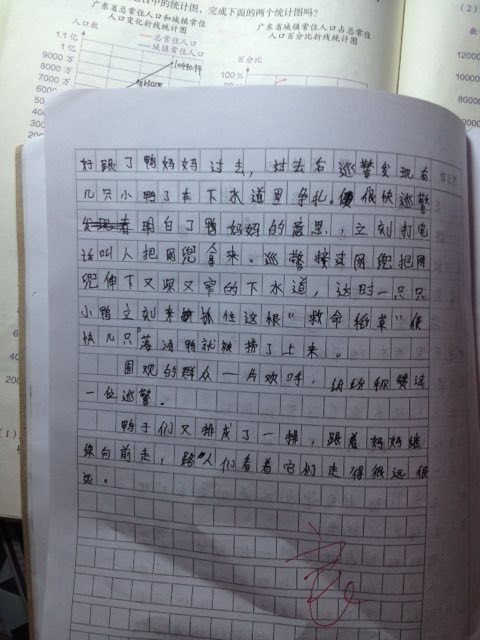 中的统计图，完成下面的两个统计图吗？
广东省总常住人口和城镇常住
人口变化折线统计图
人口数
总常住人口
城镇常住人口
1.1 亿
1 亿
9000 万
8000 万
7000 万
广东省城镇常住人口占总常住
人口百分比折线统计图
百分比
100 %
(2)
12000
10000
8000
好跟了鸭妈妈过去，过去后巡警发现有
几只小鸭子在下水道里争扎。很快巡警
明白了鸭妈妈的意思，立刻打电
话叫人把网兜拿来。巡警接过网兜把网
兜伸下又深又窄的下水道，这时一只只
小鸭立刻来抓住这根“救命稻草”很
快几只“落汤鸭”就被捞了上来。
围观的群众一片欢呼，纷纷称赞这
一位巡警。
鸭子们又排成了一排，跟着妈妈继
续向前走，路人们看着它们走得很远很
远。